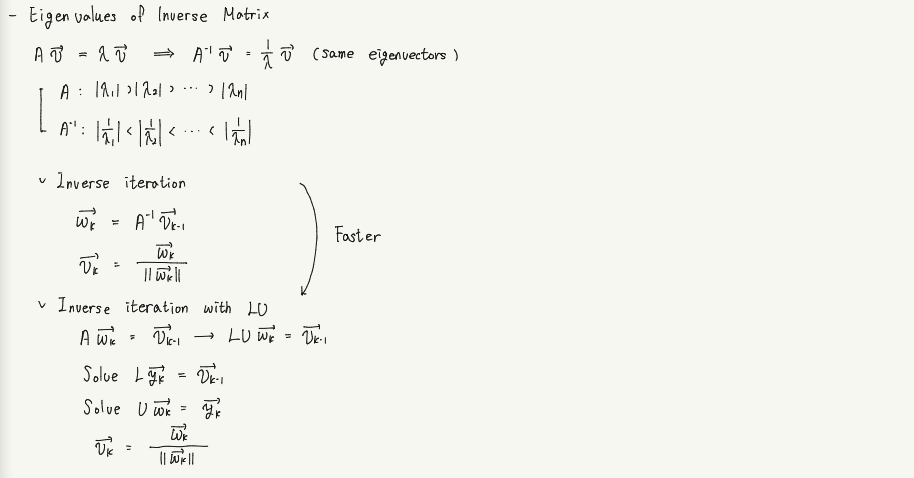 - Eigenvalues of Inverse Matrix
A v⃗ = λ v⃗ ⟹ A⁻¹ v⃗ = 1/λ v⃗ (same eigenvectors)
A : |λ₁| > |λ₂| > ⋯ > |λn|
A⁻¹ : |1/λ₁| < |1/λ₂| < ⋯ < |1/λn|
˅ Inverse iteration
w⃗k = A⁻¹ v⃗k-1
Faster
v⃗k = w⃗k / ||w⃗k||
˅ Inverse iteration with LU
A w⃗k = v⃗k-1 → LU w⃗k = v⃗k-1
Solve L y⃗k = v⃗k-1
Solve U w⃗k = y⃗k
v⃗k = w⃗k / ||w⃗k||